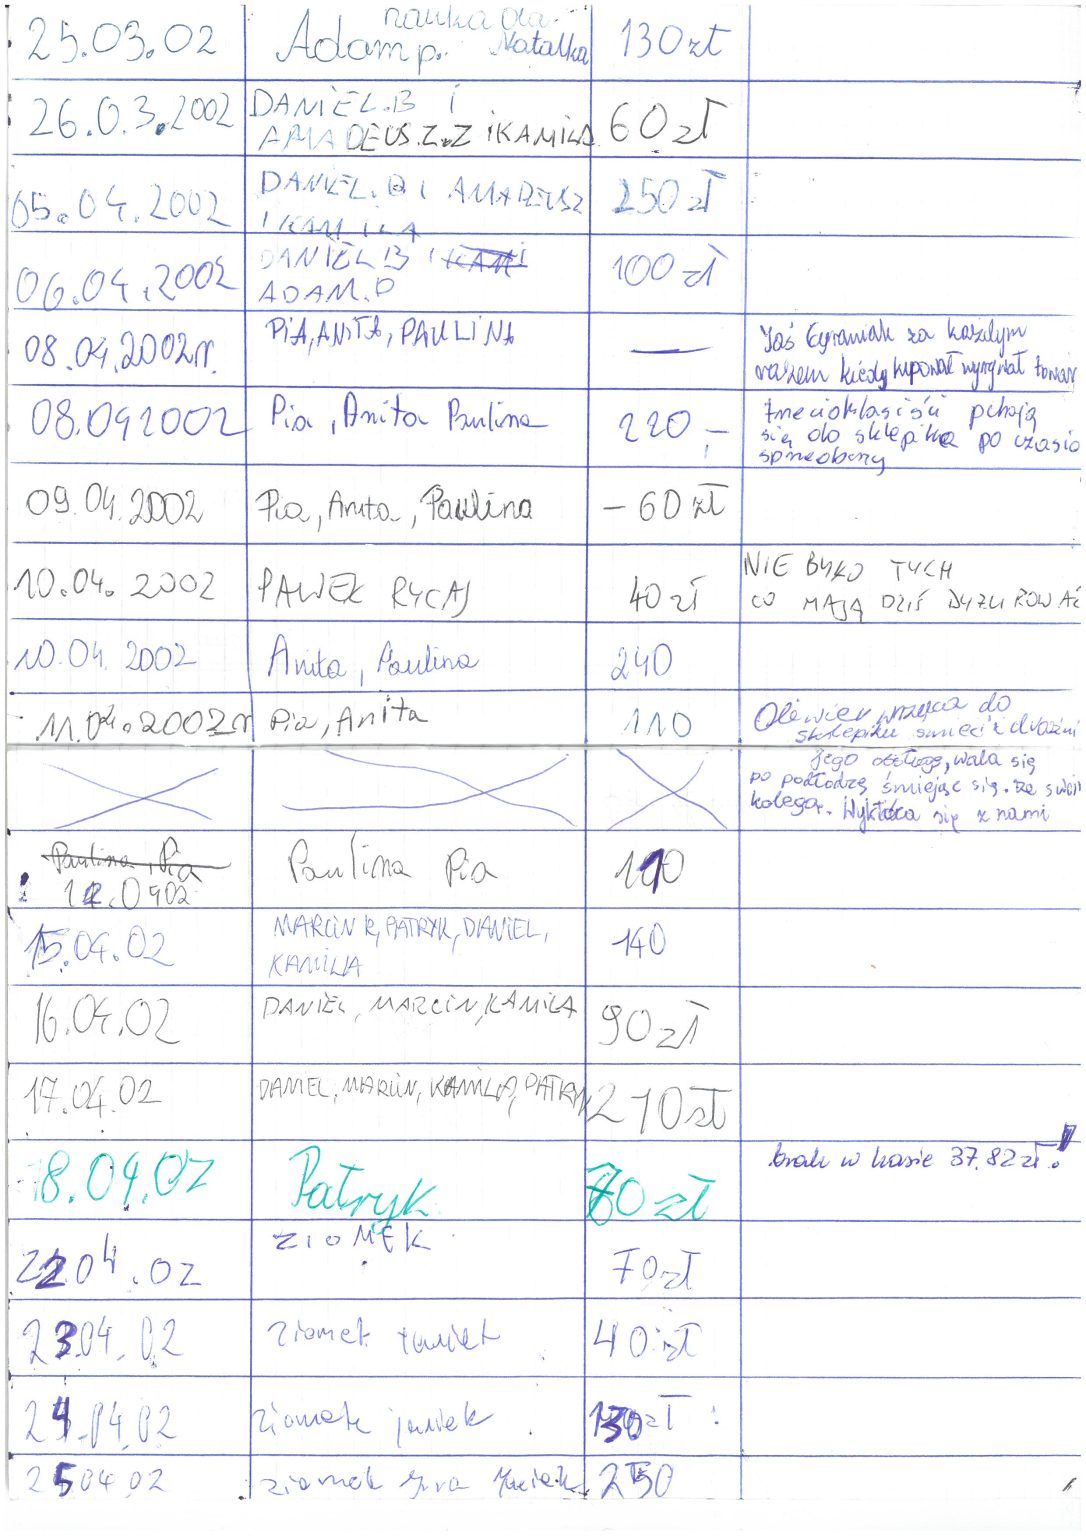 25.03.02 Adam p. nauka dla Natalka 130 zł
26.0.3.2002 DANIEL.B I
AMADEUS.Z.Z i KAMILA 60 zł
05.04.2002 DANIEL.B I AMADEUSZ
I KAMILA 250 zł
06.04.2002 DANIEL B I
ADAM.P 100 zł
08.04.2002r. PiA, ANITA, PAULINA — Jaś Cyraniak za każdym
razem kiedy kupował wyrywał towar
08.042002 Pia, Anita Paulina 220,- trzecioklasiści pchają
się do sklepika po czasie
sprzedaży
09.04.2002 Pia, Anita, Paulina - 60 zł
10.04.2002 PAWEŁ RYCAJ 40 zł NIE BYŁO TYCH
CO MAJĄ DZIŚ DYZUROWAĆ
10.04.2002 Anita, Paulina 240
11.04.2002r Pia, Anita 110 Oliwier wrzuca do
sklepiku śmieci i drażni
jego obsługę, wala się
po podłodze śmiejąc się. ze swoim
kolegą. Wykłóca się z nami
Paulina, Pia
12.0402 Paulina Pia 110
15.04.02 MARCIN R, PATRYK, DANIEL,
KAMILA 140
16.04.02 DANIEL, MARCIN, KAMILA 90 zł
17.04.02 DANIEL, MARCIN, KAMILA, PATRYK 210 zł
18.04.02 Patryk 70 zł brak w kasie 37.82 zł.!
2204.02 ZIOMEK 70 zł
2304.02 ziomek 40 zł
24.04.02 ziomek janek 130 zł
2504.02 ziomek 250